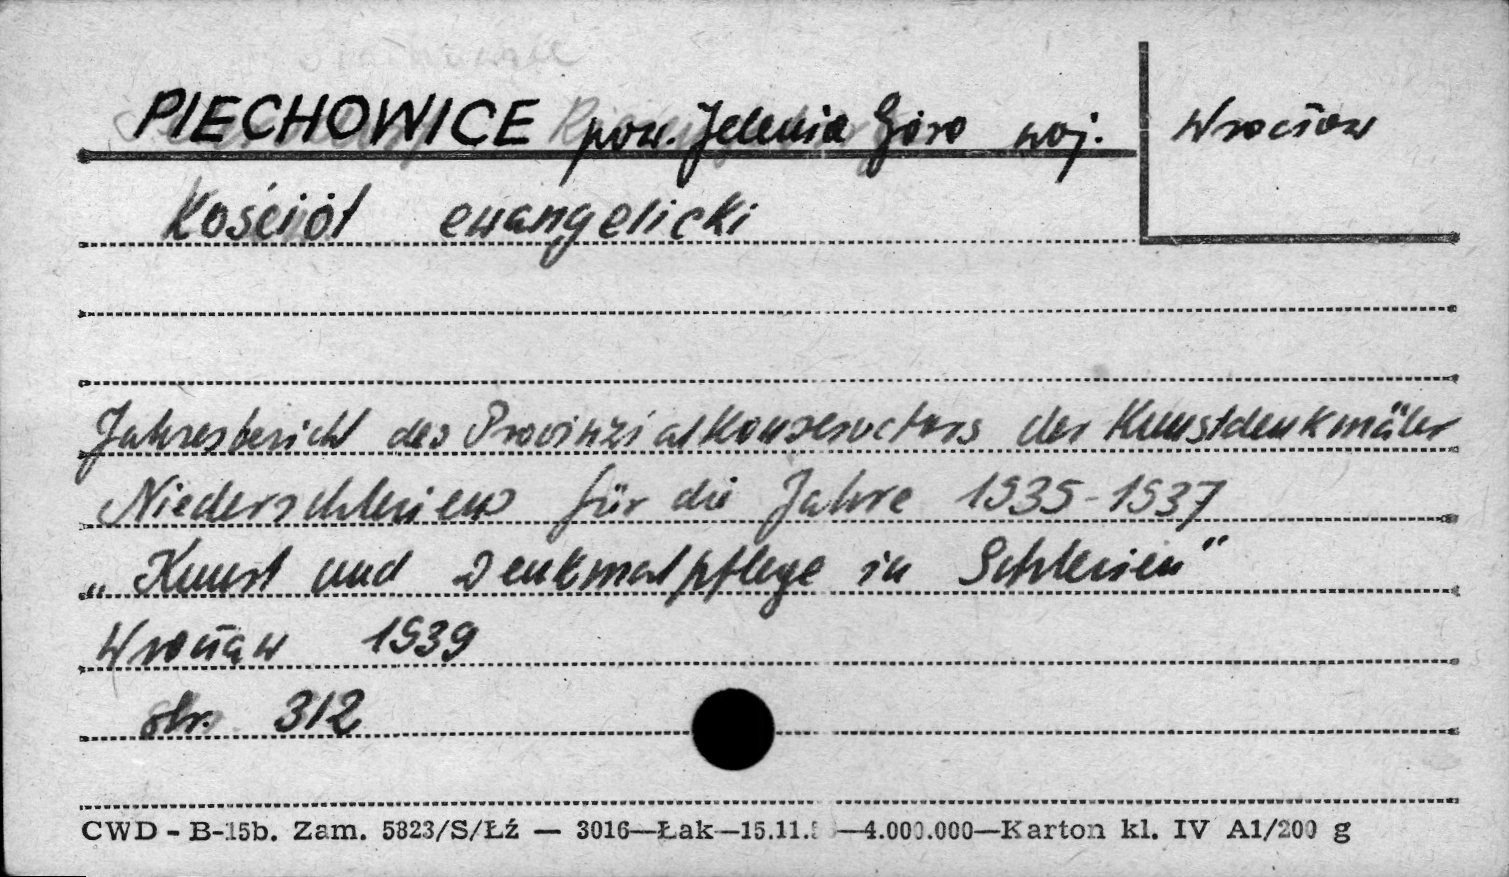 PIECHOWICE pow. Jelenia Góra woj. Wrocław
Kościół ewangelicki
Jahresbericht des Provinzialkonservators der Kunstdenkmäler
Niederschlesiens für die Jahre 1935-1937
„Kunst und Denkmalpflege in Schlesien"
Wrocław 1939
str. 312
CWD - B-15b. Zam. 5823/S/Łź — 3016—Łak—15.11. —4.000.000—Karton kl. IV A1/200 g